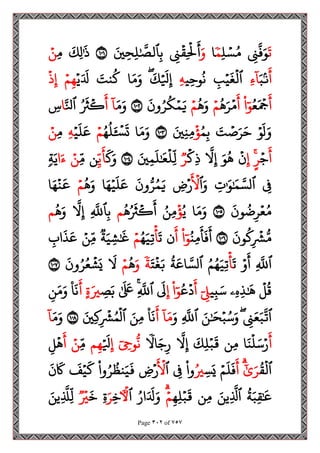 تَوَفَّنِي مُسْلِمٗا وَأَلْحِقْنِي بِالصَّٰلِحِينَ ١٠١ ذَٰلِكَ مِنْ
أَنۢبَآءِ الْغَيْبِ نُوحِيهِ إِلَيْكَۖ وَمَا كُنتَ لَدَيْهِمْ إِذْ
أَجْمَعُوٓا۟ أَمْرَهُمْ وَهُمْ يَمْكُرُونَ ١٠٢ وَمَآ أَكْثَرُ النَّاسِ
وَلَوْ حَرَصْتَ بِمُؤْمِنِينَ ١٠٣ وَمَا تَسْـَٔلُهُمْ عَلَيْهِ مِنْ
أَجْرٍۚ إِنْ هُوَ إِلَّا ذِكْرٞ لِّلْعَٰلَمِينَ ١٠٤ وَكَأَيِّن مِّنْ ءَايَةٖ
فِي السَّمَٰوَٰتِ وَالْأَرْضِ يَمُرُّونَ عَلَيْهَا وَهُمْ عَنْهَا
مُعْرِضُونَ ١٠٥ وَمَا يُؤْمِنُ أَكْثَرُهُم بِاللَّهِ إِلَّا وَهُم
مُّشْرِكُونَ ١٠٦ أَفَأَمِنُوٓا۟ أَن تَأْتِيَهُمْ غَٰشِيَةٞ مِّنْ عَذَابِ
اللَّهِ أَوْ تَأْتِيَهُمُ السَّاعَةُ بَغْتَةٗ وَهُمْ لَا يَشْعُرُونَ ١٠٧
قُلْ هَٰذِهِۦ سَبِيلِيٓ أَدْعُوٓا۟ إِلَى اللَّهِۚ عَلَىٰ بَصِيرَةٍ أَنَا۠ وَمَنِ
اتَّبَعَنِيۖ وَسُبْحَٰنَ اللَّهِ وَمَآ أَنَا۠ مِنَ الْمُشْرِكِينَ ١٠٨ وَمَآ
أَرْسَلْنَا مِن قَبْلِكَ إِلَّا رِجَالٗا نُّوحِيٓ إِلَيْهِم مِّنْ أَهْلِ
الْقُرَىٰٓۗ أَفَلَمْ يَسِيرُوا۟ فِي الْأَرْضِ فَيَنظُرُوا۟ كَيْفَ كَانَ
عَٰقِبَةُ الَّذِينَ مِن قَبْلِهِمْۗ وَلَدَارُ الْأٓخِرَةِ خَيْرٞ لِّلَّذِينَ
Page ٤٠٢ of ٧٥٧